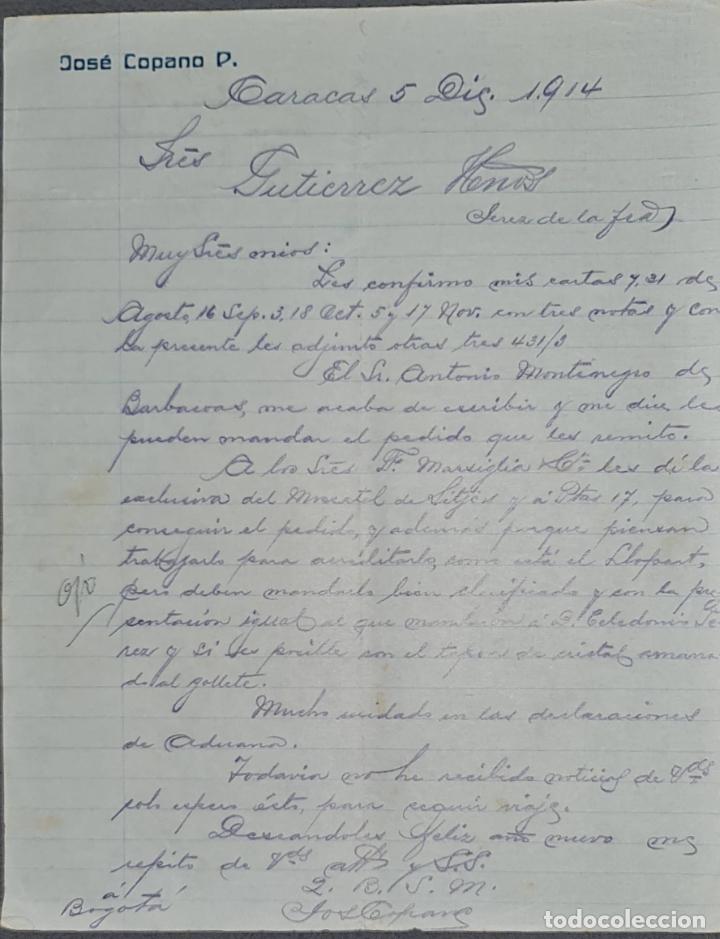 José Copano P.
Caracas 5 Dic. 1.914
Srēs
Gutierrez Hnos
Jerez de la Fra
Muy Srēs mios:
Les confirmo mis cartas 7, 31 de
Agosto, 16 Sep. 3, 18 Oct. 5 y 17 Nov. con tres notas y con
la presente les adjunto otras tres 431/3
El Sr. Antonio Montenegro de
Barbacoas, me acaba de escribir y me dice le
pueden mandar el pedido que les remito.
A los Srēs F. Marsiglia & Cía les di la
exclusiva del Moscatel de Sitjes y á Ptas 17, para
conseguir el pedido, y además porque piensan
trabajarlo para acreditarlo, como está el Llopart,
ojo
pero deben mandarlo bien clarificado y con la pre
sentación igual al que mandaron á D. Celedonio Pe
rez y si es posible con el tapon de cristal amarra
do al gollete.
Mucho cuidado en las declaraciones
de Aduana.
Todavia no he recibido noticias de Vds
solo espero ésto, para seguir viaje.
Deseandoles feliz año nuevo me
repito de Vds atto y S.S.
Q. B. S. M.
José Copano
á
Bogotá
todocoleccion